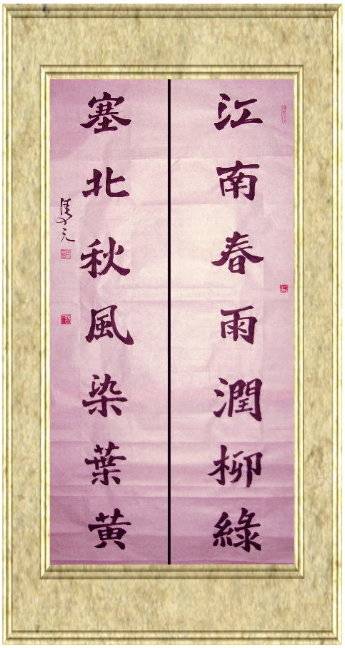 江南春雨潤柳綠
塞北秋風染葉黃